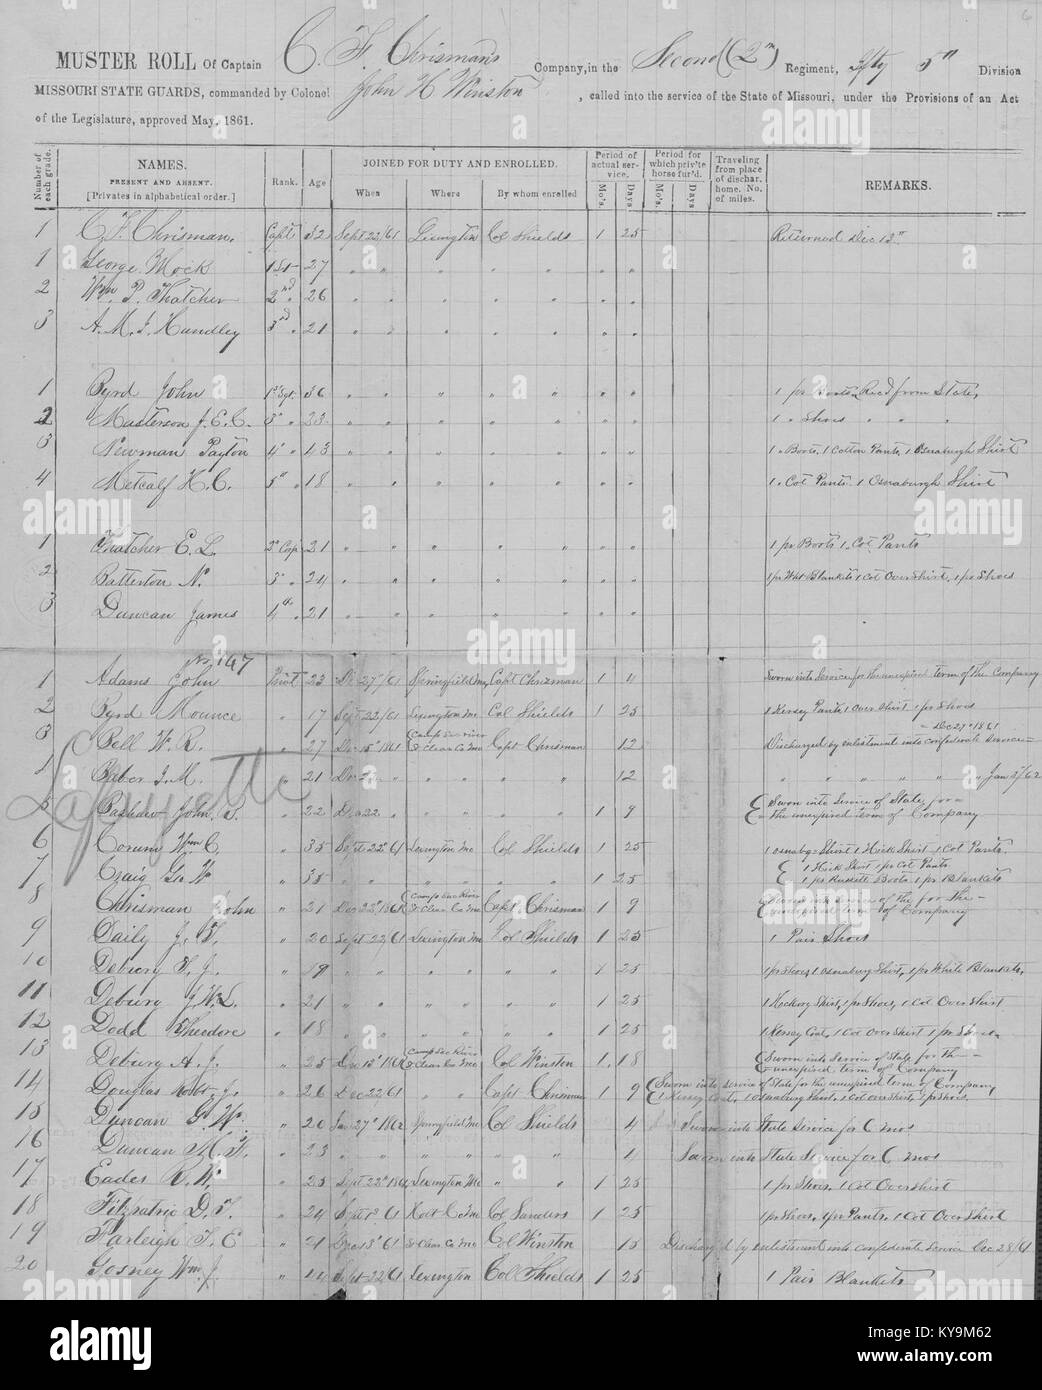 6
MUSTER ROLL Of Captain C. F. Chrisman's Company, in the Second (2nd) Regiment, 5th Division
MISSOURI STATE GUARDS, commanded by Colonel John H Winston, called into the service of the State of Missouri, under the Provisions of an Act
of the Legislature, approved May, 1861.
Number of each grade. NAMES. PRESENT AND ABSENT. [Privates in alphabetical order.] Rank. Age JOINED FOR DUTY AND ENROLLED. When Where By whom enrolled Period of actual service. Mo's. Days Period for which priv'te horse fur'd. Mo's. Days Traveling from place of dischar. home. No. of miles. REMARKS.
1 C. F. Chrisman, Capt 32 Sept 22/61 Lexington Col Shields 1 25 Returned Dec 13th
1 George Mock 1st " 27 " " " " " "
2 Wm P. Thatcher 2nd " 26 " " " " " "
3 A. M. J. Hundley 3rd " 21 " " " " " "
1 Byrd John 1st Sgt. 36 " " " " " " 1 pr Boots Recd from State,
2 Masterson J. E. C. 3" " 23 " " " " " " 1 " Shoes " " "
3 Newman Payton 4" " 43 " " " " " " 1 " Boots, 1 Cotton Pants, 1 Osnaburgh Shirt
4 Metcalf H. C. 5" " 18 " " " " " " 1 " Cot Pants 1 Osnaburgh Shirt
1 Thatcher E. L. 2" Cop 21 " " " " " " 1 pr Boots 1 " Cot Pants
2 Batterton N. 3" " 24 " " " " " " 1 pr Wht Blankets 1 Cot Over Shirt, 1 pr Shoes
3 Duncan James 4th " 21 " " " " " "
No. 147
1 Adams John Privt 23 27/61 Springfield Mo Capt Chrisman 1 4 Sworn into Service for the unexpired term of the Company
2 Byrd Mounce " 17 Sept 22/61 Lexington Mo Col Shields 1 25 1 Kersey Pants 1 Over Shirt 1 pr Shoes
3 Bell W. R. " 27 Dec 15th 1861 Camp Sac river St Clair Co Mo Capt Chrisman 12 Discharged by enlistment into confederate service Dec 27th 1861
J. M. " 21 Dec 22 " " " " 12 " " " " " Jan 2/62
5 John S. " 22 Dec 22 " " " " 1 9 Sworn into Service of State for the unexpired term of Company
Lafayette
6 Corum Wm C. " 35 Sept 22" 61 Lexington Mo Col Shields 1 25 1 osnabg Shirt 1 Hick Shirt 1 Cot Pants
7 Craig Geo W " 35 " " " " " 1 25 1 Hick Shirt 1 pr Cot Pants 1 pr Russett Boots 1 pr Blankets
8 Chrisman John " 21 Dec 22" 1861 Camp Sac River St Clair Co Mo Capt Chrisman 1 9 Sworn into service of the for the unexpired term of Company
9 Daily J. T. " 20 Sept 22/61 Lexington Mo Col Shields 1 25 1 Pair Shoes
10 Deburg T. J. " 19 " " " " " 1 25 1 pr Shoes, 1 osnaburg Shirt, 1 pr White Blankets,
11 Deburg J W. L. " 21 " " " " " 1 25 1 Hickory Shirt, 1 pr Shoes, 1 Cot Over Shirt
12 Dodd Theodore " 18 " " " " " 1 25 1 Kersey Coat, 1 Cot Over Shirt 1 pr Shoes
13 Deburg A. J. " 25 Dec 13" 1861 Camp Sac River St Clair Co Mo Col Winston 1 18 Sworn into Service of State for the unexpired term of Company
14 Douglas Robt. J. " 26 Dec 22/61 " " Capt Chrisman 1 9 Sworn into service of State for the unexpired term of Company 1 Kersey Coat, 1 Osnaburg Shirt, 1 Cot Over Shirt, 1 pr Shoes.
15 Duncan G. W. " 20 Jan 27" 1862 Springfield Mo Col Shields 4 Sworn into State Service for 6 mos
16 Duncan M. F. " 23 " " " " " 4 Sworn into State Service for 6 mos
17 Eades R. W. " 25 Sept 22" 1861 Lexington Mo " " 1 25 1 pr Shoes, 1 Cot Over Shirt
18 Fitzpatric D. T. " 24 Sept 1st 61 Holt Co Mo Col Sanders 1 25 1 pr Shoes, 1 pr Pants, 1 Cot Over Shirt
19 Farleigh T. E " 21 Dec 13" 61 St Clair Co Mo Col Winston 15 Discharg'd by enlistment into confederate Service Dec 28/61
20 Gosney Wm. J. " Sept 22/61 Lexington Col Shields 1 25 1 Pair Blankets
alamy
Image ID: KY9M62
www.alamy.com